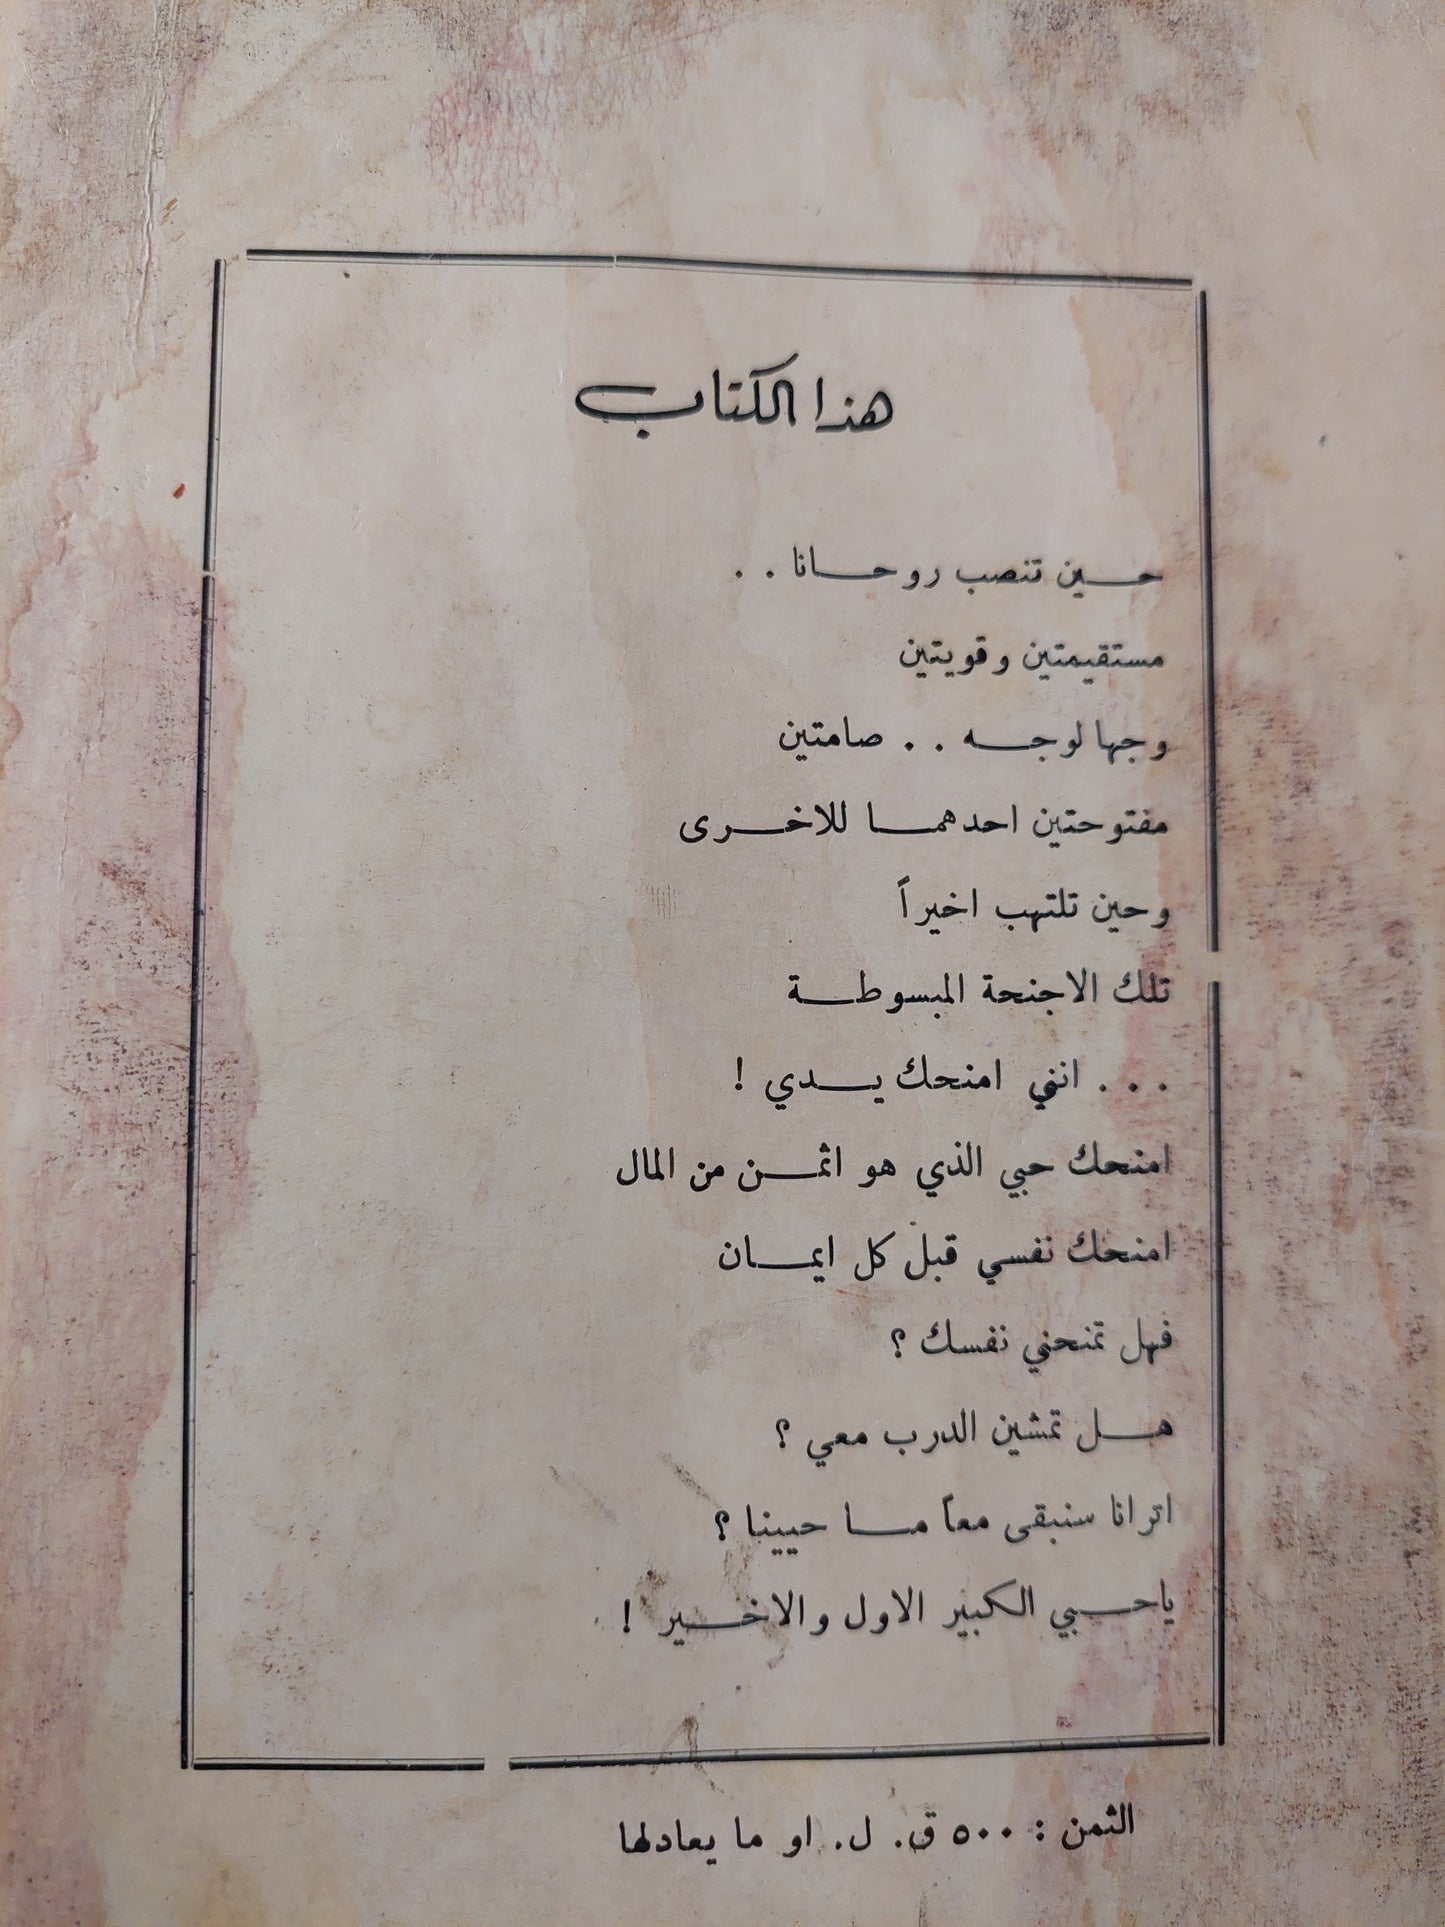 هذا الكتاب
حين تنصب روحانا . .
مستقيمتين وقويتين
وجها لوجه . . صامتين
مفتوحتين احدهما للاخرى
وحين تلتهب اخيراً
تلك الاجنحة المبسوطة
. . . انني امنحك يدي !
امنحك حبي الذي هو اثمن من المال
امنحك نفسي قبل كل ايمان
فهل تمنحني نفسك ؟
هل تمشين الدرب معي ؟
اترانا سنبقى معاً ما حيينا ؟
ياحبي الكبير الاول والاخير !
الثمن : ٥٠٠ ق. ل. او ما يعادلها